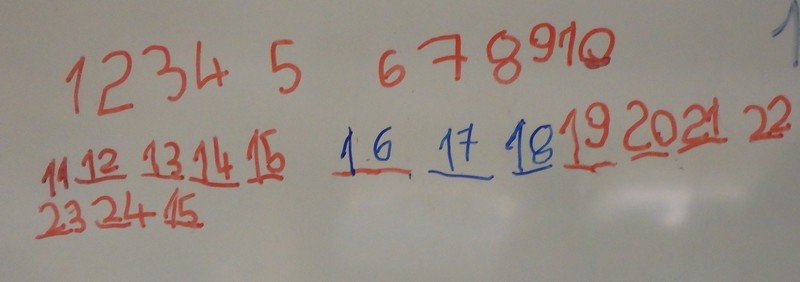 1 2 3 4 5 6 7 8 9 10
11 12 13 14 15 16 17 18 19 20 21 22
23 24 15